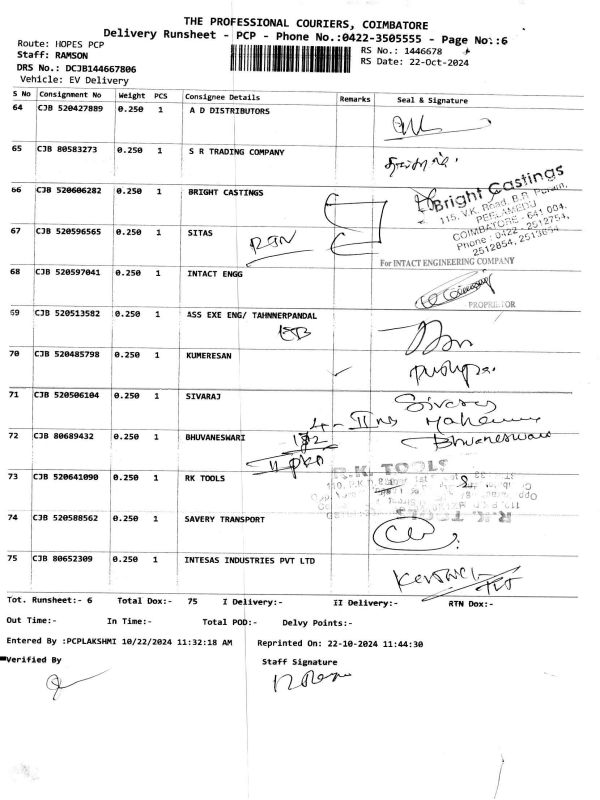 THE PROFESSIONAL COURIERS, COIMBATORE
Delivery Runsheet - PCP - Phone No.:0422-3505555 - Page No.:6
Route: HOPES PCP
Staff: RAMSON
DRS No.: DCJB144667806
Vehicle: EV Delivery
RS No.: 1446678
RS Date: 22-Oct-2024
S No Consignment No Weight PCS Consignee Details Remarks Seal & Signature
64 CJB 520427889 0.250 1 A D DISTRIBUTORS
65 CJB 80583273 0.250 1 S R TRADING COMPANY
66 CJB 520606282 0.250 1 BRIGHT CASTINGS
Bright Castings
115, V.K. Road, B.R. Puram,
PEELAMEDU
COIMBATORE - 641 004.
Phone : 0422 - 2512754,
67 CJB 520596565 0.250 1 SITAS
RTN
For INTACT ENGINEERING COMPANY
68 CJB 520597041 0.250 1 INTACT ENGG
PROPRIETOR
69 CJB 520513582 0.250 1 ASS EXE ENG/ TAHNNERPANDAL
EB
70 CJB 520485798 0.250 1 KUMERESAN
pushpa
71 CJB 520506104 0.250 1 SIVARAJ
Sivaraj
72 CJB 80689432 0.250 1 BHUVANESWARI
Bhuvneswari
73 CJB 520641090 0.250 1 RK TOOLS
R.K. TOOLS
74 CJB 520588562 0.250 1 SAVERY TRANSPORT
75 CJB 80652309 0.250 1 INTESAS INDUSTRIES PVT LTD
Tot. Runsheet:- 6 Total Dox:- 75 I Delivery:- II Delivery:- RTN Dox:-
Out Time:- In Time:- Total POD:- Delvy Points:-
Entered By :PCPLAKSHMI 10/22/2024 11:32:18 AM Reprinted On: 22-10-2024 11:44:30
Verified By Staff Signature